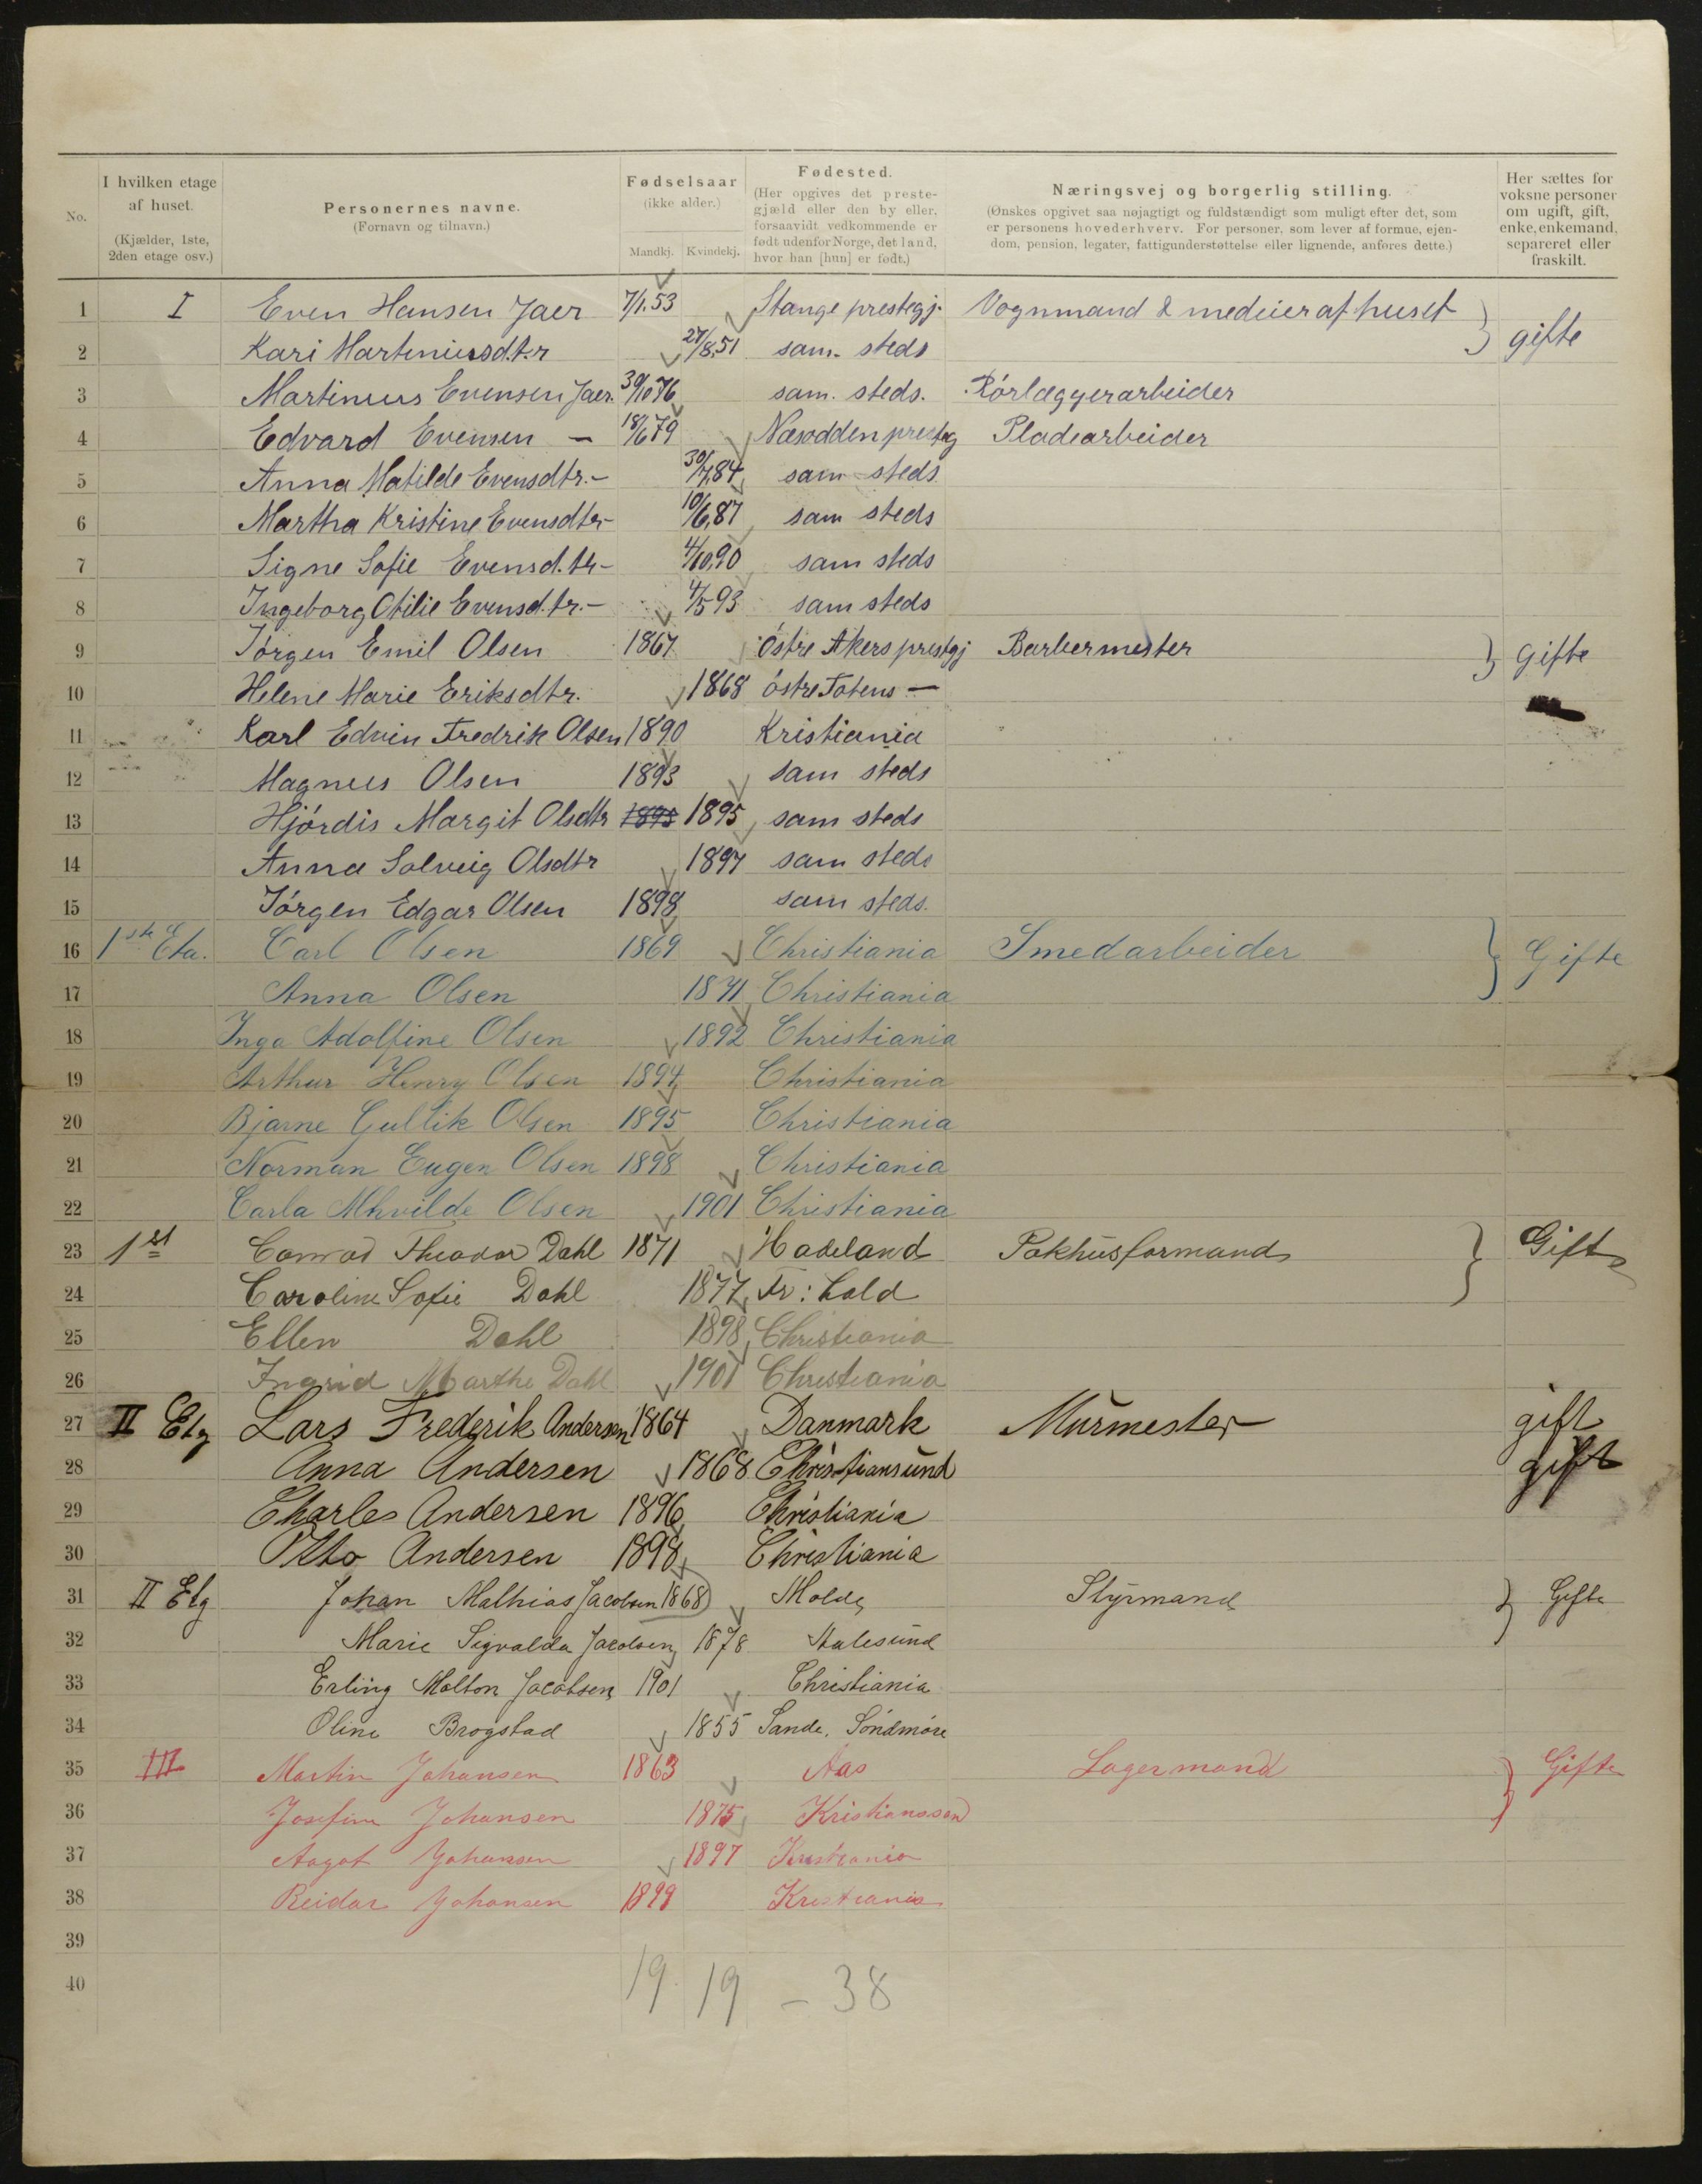 No.
I hvilken etage af huset.
(Kjælder, 1ste, 2den etage osv.)
Personernes navne.
(Fornavn og tilnavn.)
Fødselsaar
(ikke alder.)
Mandkj. Kvindekj.
Fødested.
(Her opgives det prestegjæld eller den by eller, forsaavidt vedkommende er født udenfor Norge, det land, hvor han [hun] er født.)
Næringsvej og borgerlig stilling.
(Ønskes opgivet saa nøjagtigt og fuldstændigt som muligt efter det, som er personens hovederhverv. For personer, som lever af formue, ejendom, pension, legater, fattigunderstøttelse eller lignende, anføres dette.)
Her sættes for voksne personer om ugift, gift, enke, enkemand, separeret eller fraskilt.
1 I Even Hansen Jaer 7/1.53 Stange prestegj. Vognmand & medeier af huset } gifte
2 Kari Martiniusd.t.r 27/8.51 sam. steds
3 Martinius Evensen Jaer. 30/10 76 sam. steds. Rörlæggerarbeider
4 Edvard Evensen — 18/6 79 Næsodden presteg Pladearbeider
5 Anna Matilde Evensdtr. – 30/7.84 sam steds
6 Martha Kristine Evensdtr – 10/6.87 sam steds
7 Signe Sofie Evensd.tr – 4/10.90 sam steds
8 Ingeborg Otilie Evensd.tr. – 4/5 93 sam steds
9 Jörgen Emil Olsen 1867 östre Akers prestgj Barbermester } gifte
10 Helene Marie Eriksdtr. 1868 östre Totens —
11 Karl Edvin Fredrik Olsen 1890 Kristiania
12 Magnus Olsen 1893 sam steds
13 Hjördis Margit Olsdtr 1895 1895 sam steds
14 Anna Solveig Olsdtr 1897 sam steds
15 Jörgen Edgar Olsen 1898 sam steds.
16 1ste Eta. Carl Olsen 1869 Christiania Smedarbeider } Gifte
17 Anna Olsen 1871 Christiania
18 Inga Adolfine Olsen 1892 Christiania
19 Arthur Henry Olsen 1894 Christiania
20 Bjarne Gullik Olsen 1895 Christiania
21 Norman Eugen Olsen 1898 Christiania
22 Carla Olsen 1901 Christiania
23 1st Conrad Theodor Dahl 1871 Hadeland Pakhusformand } Gift
24 Caroline Sofie Dahl 1877 Fr: hald
25 Ellen Dahl 1898 Christiania
26 Ingrid Marthe Dahl 1901 Christiania
27 II Etg Lars Frederik Andersen 1864 Danmark Murmester gift
28 Anna Andersen 1868 Christiansund gift
29 Charles Andersen 1896 Christiania
30 Otto Andersen 1898 Christiania
31 II Etg Johan Mathias Jacobsen 1868 Molde Styrmand } Gifte
32 Marie Sigvalda Jacobsen 1878 Aalesund
33 Erling Molton Jacobsen 1901 Christiania
34 Oline Brogstad 1855 Sande, Söndmöre
35 III Martin Johansen 1863 Aas Lagermand } Gifte
36 Josefine Johansen 1875 Kristianssand
37 Aagot Johansen 1897 Kristiania
38 Reidar Johansen 1899 Kristiania
39
40
19 19 – 38